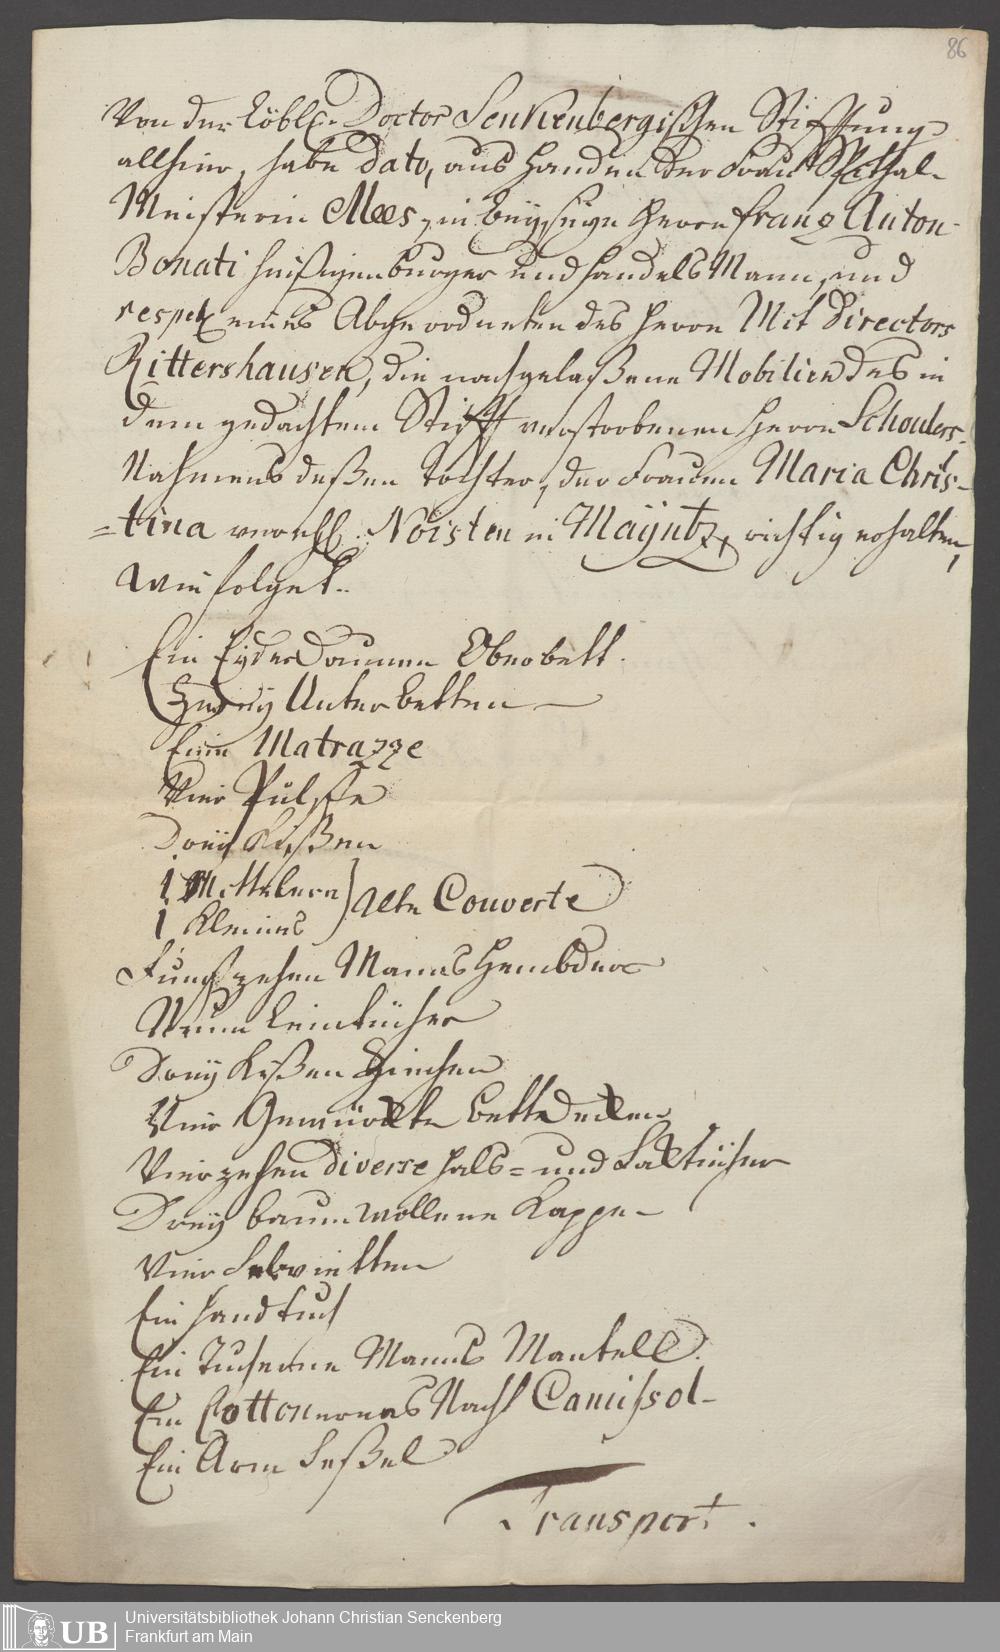 86
Von der Löbl. Doctor Senkenbergischen Stifftung
allhier, habe dato, aus Handen der Frau Spithal-
Meisterin Mees, in beyseyn Herrn Franz Anton
Bonati hiesigen burger und handels Mann, und
resp. eines Abgeordneten des Herrn Mit Directors
Rittershausen, die nachgelaßene Mobilien des in
dem gedachtem Stifft verstorbenen Herrn Schoulers,
Nahmens deßen Tochter, der Frauen Maria Chris-
=tina verehl. Noisten in Mayntz, richtig erhalten,
wie folget..
Ein Eyder Daunen Oberbett.
Zwey Unter betten
Eine Matrazze
Vier Pülffe
Drey Kißen
1 Mittlere } alte Couverte
1 Kleines
Fünffzehen Manns Hembder
Neun Leintücher
Drey Kißen Ziechen
Vier Gewürckte bettdecken
Vierzehen diverse Hals= und Sacktücher
Drey baumwollene Kappe
Vier Servietten
Ein Handtuch
Ein Tucherne Manns Mantell
Ein Cottonernes Nacht Camissol
Ein Arm Seßel
Transport.
UB
Universitätsbibliothek Johann Christian Senckenberg
Frankfurt am Main